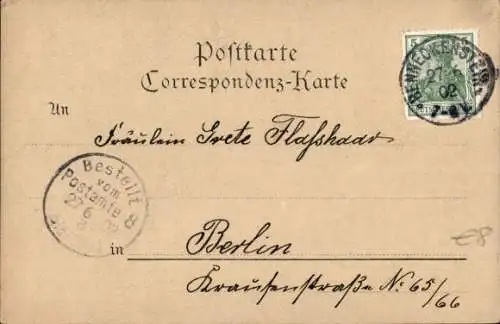 Postkarte
Correspondenz-Karte
An
Fräulein Grete Flasshaar
in Berlin
Krausenstraße No. 65/66
Bestellt
vom
Postamte 8
27 6 02
BENNECKENSTEIN
27 6
02
7-8
5